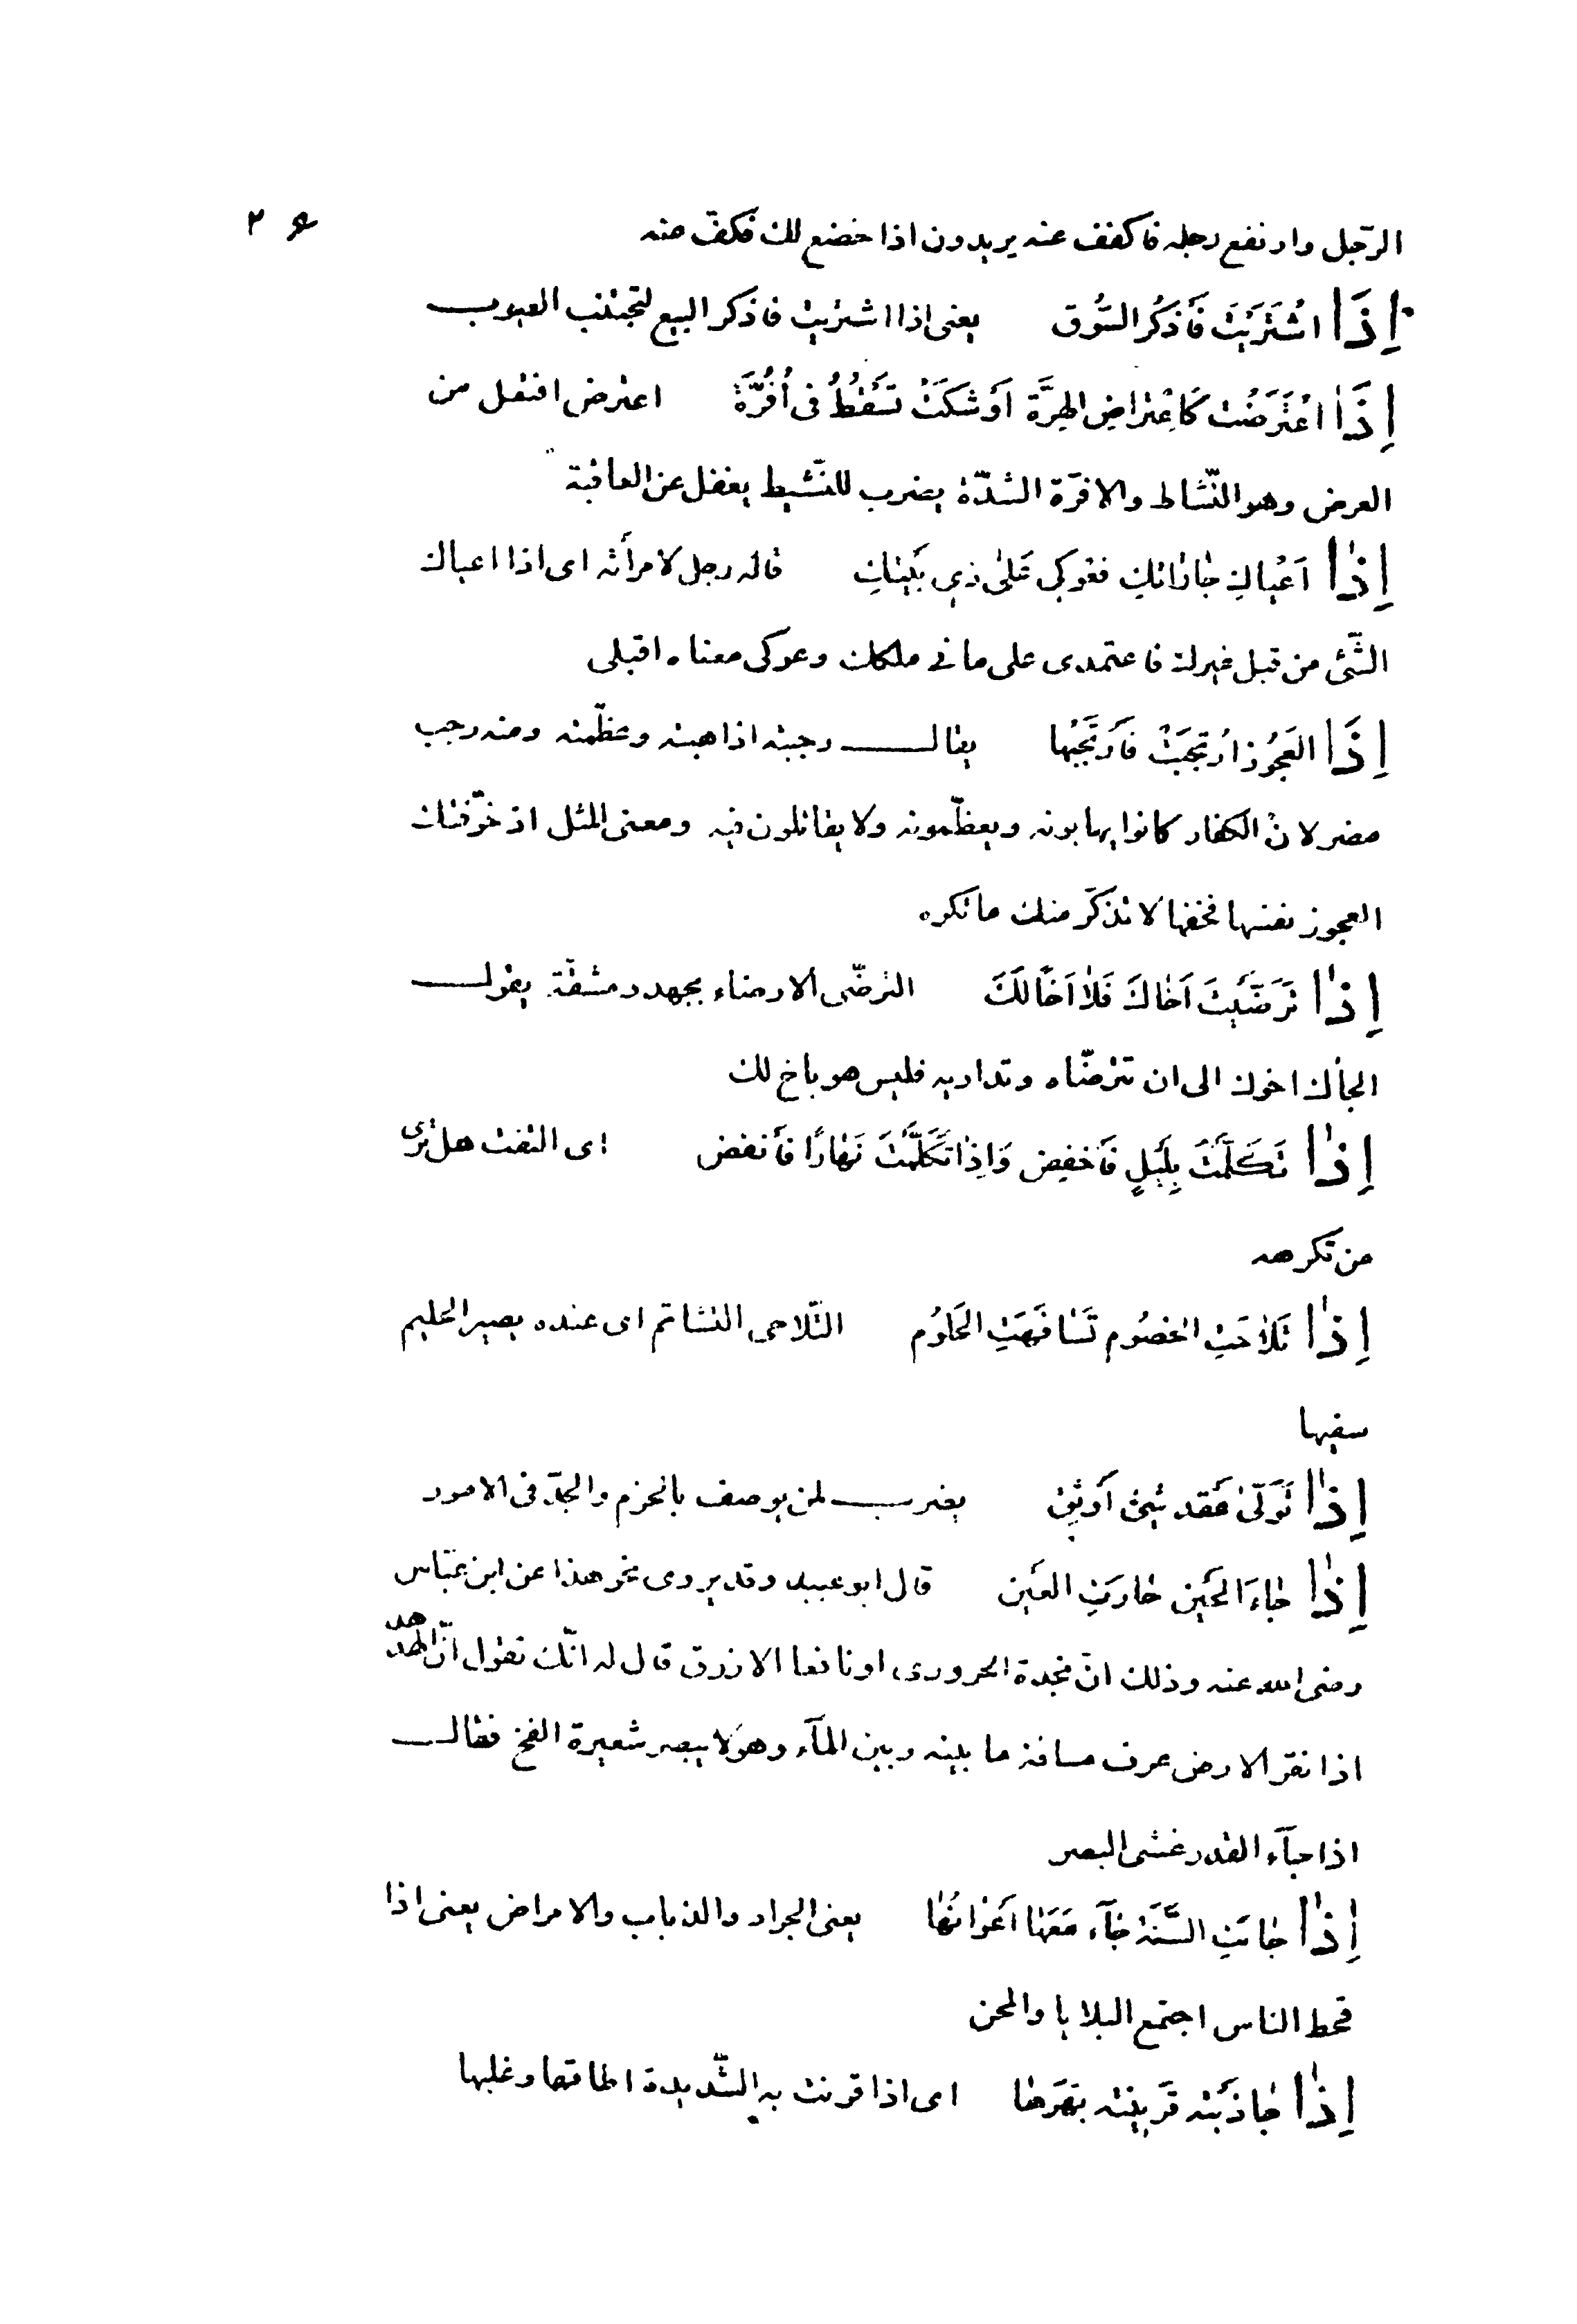 الرّجل وارتفع رجله فاكفف عنه يريدون اذا خضع لك فكفّ عنه
اِذَا اشْتَرَيْتَ فَأذكُر السُّوق يعنى اذا اشتريت فاذكر البيع لتجتنب العيوب
اِذَا اعْتَرَضْت كَاعْتراضِ الهِرَّة أوْشَكَتْ تَسْقُطُ فى أُفُرَّة اعترض افتعل من
العرض وهو النّشاط والافرّة الشدّة يضرب للنّشيط يغفل عن العاقبة
اِذا اَعْياكِ جاراتكِ فعوكى عَلىٰ ذى بَيْتكِ قاله رجل لامرأته اى اذا اعياك
الشّئ من قبل غيرك فاعتمدى على ما فى ملكك وعوكى معناه اقبلى
اِذَا العَجُوز ارْتجَبَتْ فَأرْجُبْها يقال رجبته اذا هبته وعظّمته ومنه رجب
مضر لانّ الكفار كانوا يهابونه ويعظّمونه ولا يقاتلون فيه ومعنى المثل اذ خوّفتك
العجوز نفسها فخفها لا تذكر منك ما تكره
اِذا تَرَضَّيْتَ اَخاكَ فَلا اَخًا لَكَ الترضّى الارضاء بجهد ومشقّة يقول
الجأك اخوك الى ان تترضّاه وتداريه فليس هو باخ لك
اِذا تَكَلَّمْتَ بِلَيْلٍ فَأخفِض وَاِذا تَكَلَّمْتَ نَهارًا فَأنفض اى التفت هل ترى
من تكرهه
اِذا تَلاحَتِ الخصُوم تَسافَهَتِ الحَلوُم التّلاحى التشاتم اى عنده يصير الحليم
سفيها
اِذا تَوَلّى عَقد شَىْء أوثق يضرب لمن يوصف بالحزم والجدّ فى الامور
اِذا جاءَ الحَيْن حارَتِ العَيْن قال ابو عبيد وقد يروى نحو هذا عن ابن عبّاس
رضى الله عنه وذلك انّ نجدة الحرورى او نافعا الازرق قال له انّك تقول انّ الهدهد
اذا نقر الارض عرف مسافة ما بينه وبين المآء وهو لا يبصر شعيرة الفخ فقال
اذا جآء القدر غشى البصر
اِذا جائتِ السَّنَة جآء مَعَها اَعْوانُها يعنى الجراد والذباب والامراض يعنى اذا
قحط الناس اجتمع البلايا والمحن
اِذا جاذَبَته قَرينته بَهَرَها اى اذا قرنت به الشّديدة اطاقها وغلبها